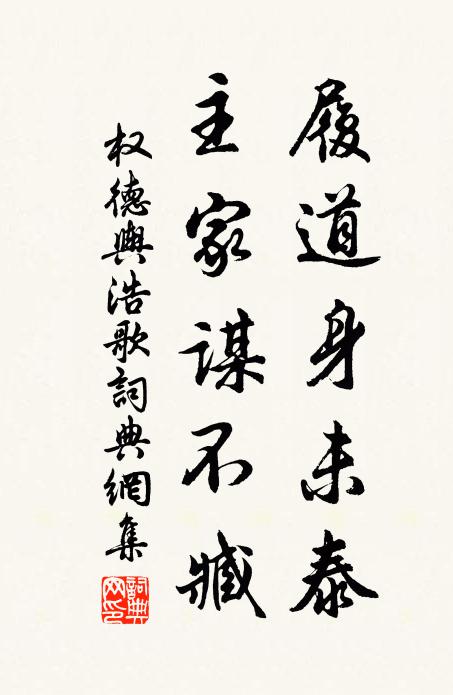 履道身未泰
主家謀不臧
权德輿浩歌詞典網集
詞典
网印